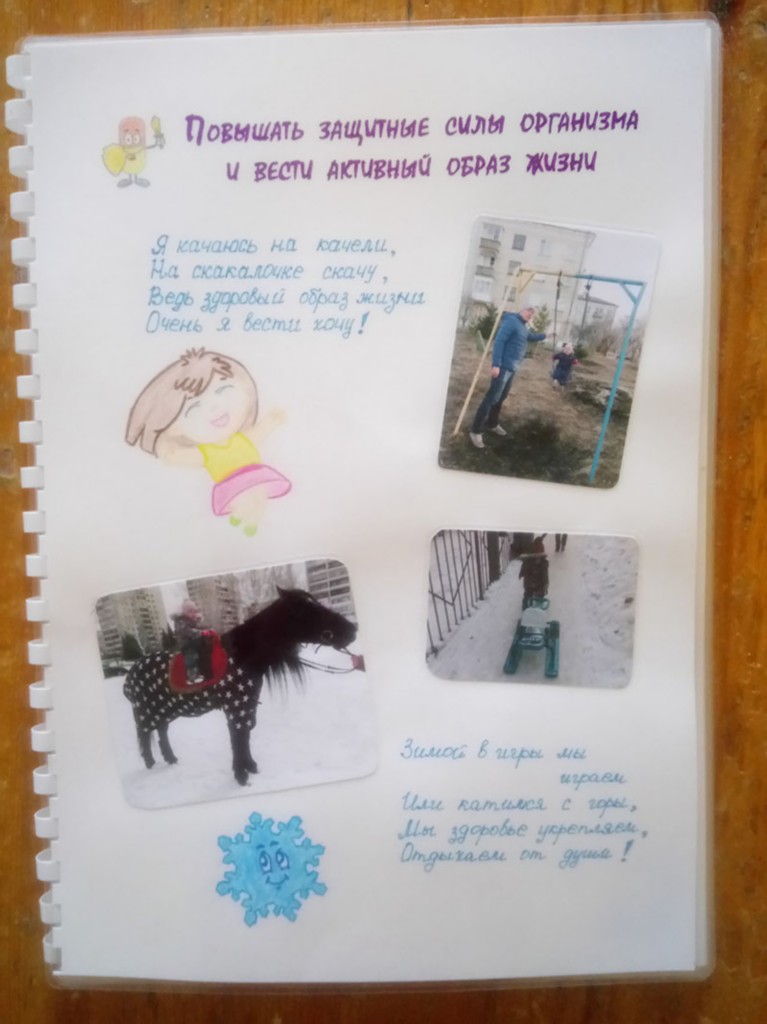 Повышать защитные силы организма
и вести активный образ жизни
Я качаюсь на качели,
На скакалочке скачу,
Ведь здоровый образ жизни
Очень я вести хочу!
Зимой в игры мы
играем
Или катимся с горы,
Мы здоровье укрепляем,
Отдыхаем от души!